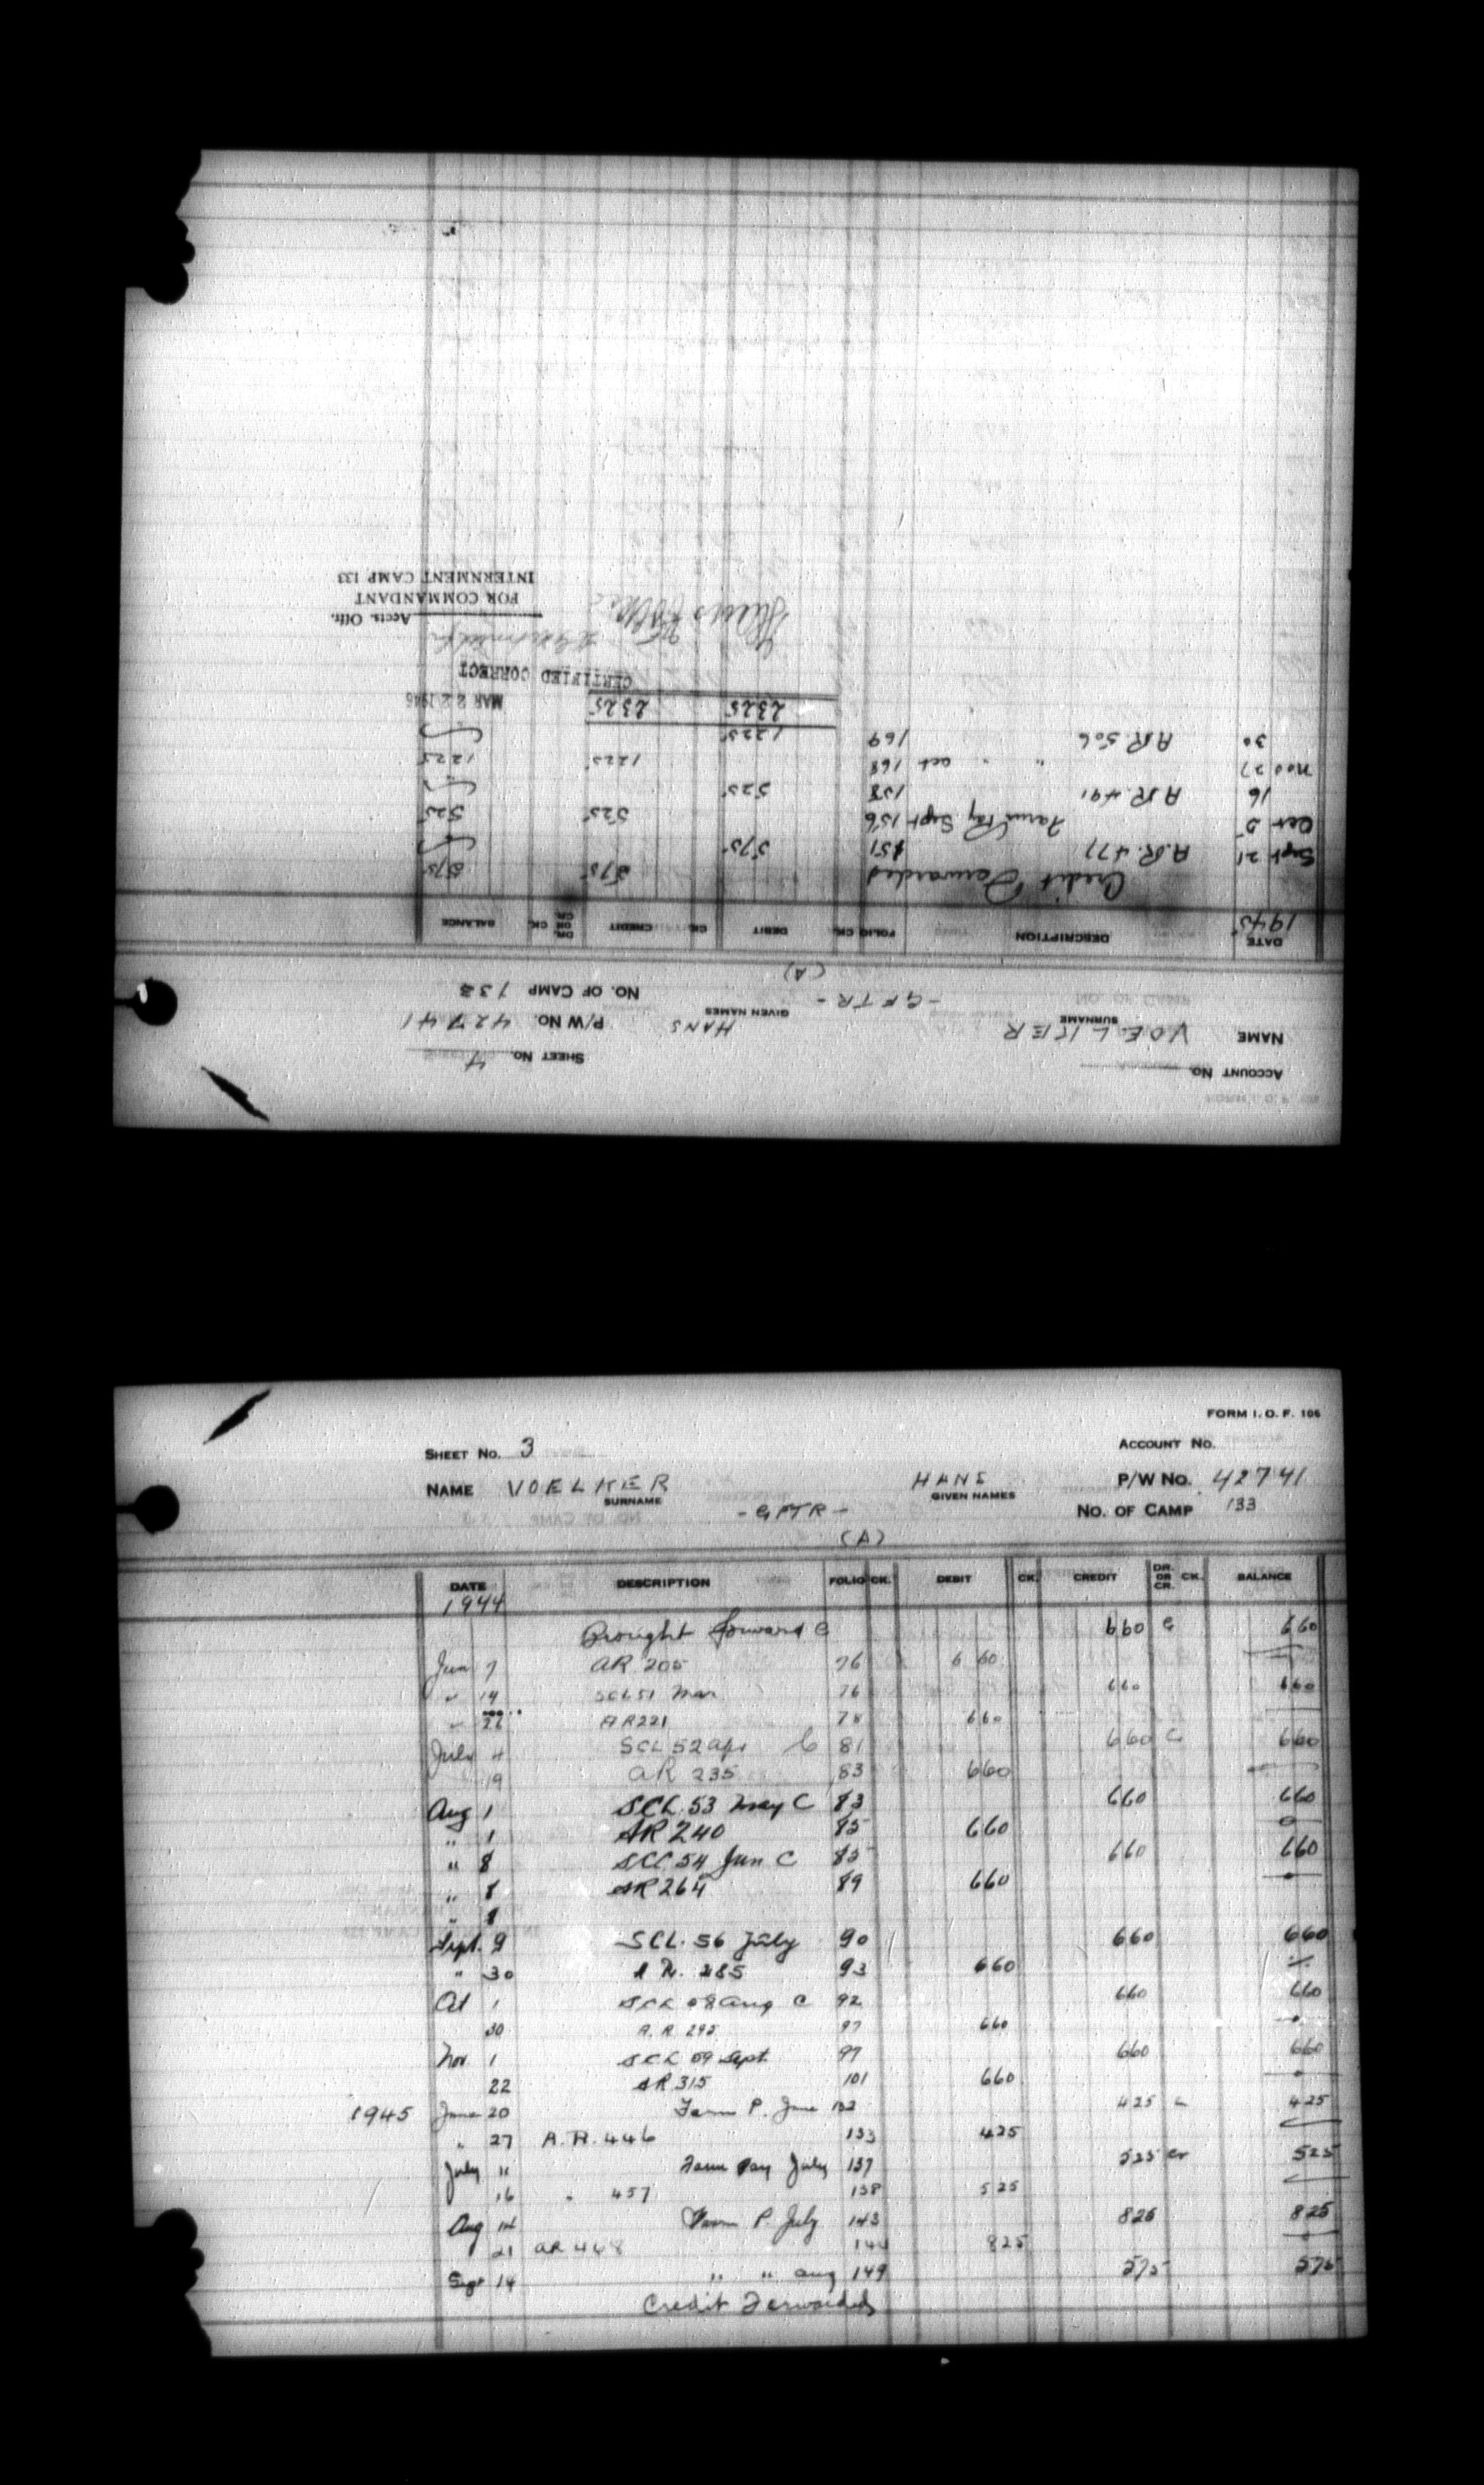 FORM I. O. F. 106
SHEET NO. 3 ACCOUNT NO.
NAME VOELKER HANS P/W NO. 42741
SURNAME GIVEN NAMES
-GFTR- NO. OF CAMP 133
(A)
DATE DESCRIPTION FOLIO CK. DEBIT CK. CREDIT DR. OR CR. CK. BALANCE
1944
Brought forward C 660 C 660
Jun 7 AR. 205 76 6 60
" 14 SCL 51 Mar 76 660 660
" 22 AR 221 78 660
July 4 SCL 52 Apr C 81 660 C 660
19 AR 235 83 660
Aug 1 SCL. 53 May C 83 660 660
" 1 AR 240 85 660 0
" 8 SCL 54 Jun C 85 660 660
" 8 AR 264 89 660
" 8
Sept. 9 SCL. 56 July 90 660 660
" 30 A R. 285 93 660
Oct 1 SCL 58 Aug C 92 660 660
30 A. R. 295 97 660
Nov 1 SCL 59 Sept. 97 660 660
22 AR 315 101 660
1945 June 20 Farm P. June 132 425 C 425
" 27 A. R. 446 133 425
July 11 Farm Pay July 137 525 Cr 525
16 " 457 138 525
Aug 14 Farm P. July 143 825 825
21 AR 468 144 825
Sept 14 " " Aug 149 575 575
Credit Forwarded
ACCOUNT NO. SHEET NO. 4
NAME VOELKER HANS P/W NO. 42741
SURNAME GIVEN NAMES
-GFTR- NO. OF CAMP 133
(A)
DATE DESCRIPTION FOLIO CK. DEBIT CK. CREDIT DR. OR CR. CK. BALANCE
1945
Credit Forwarded 575 575
Sept 21 A.R. 477 151 575
Oct 5 Farm Pay Sept 156 525 525
16 A.R. 491 158 525
Nov 27 " " Oct 168 1225 1225
30 A.R. 506 169 1225
2325 2325
MAR 22 1946
CERTIFIED CORRECT
Hans Voelker
Accts. Offr.
FOR COMMANDANT
INTERNMENT CAMP 133